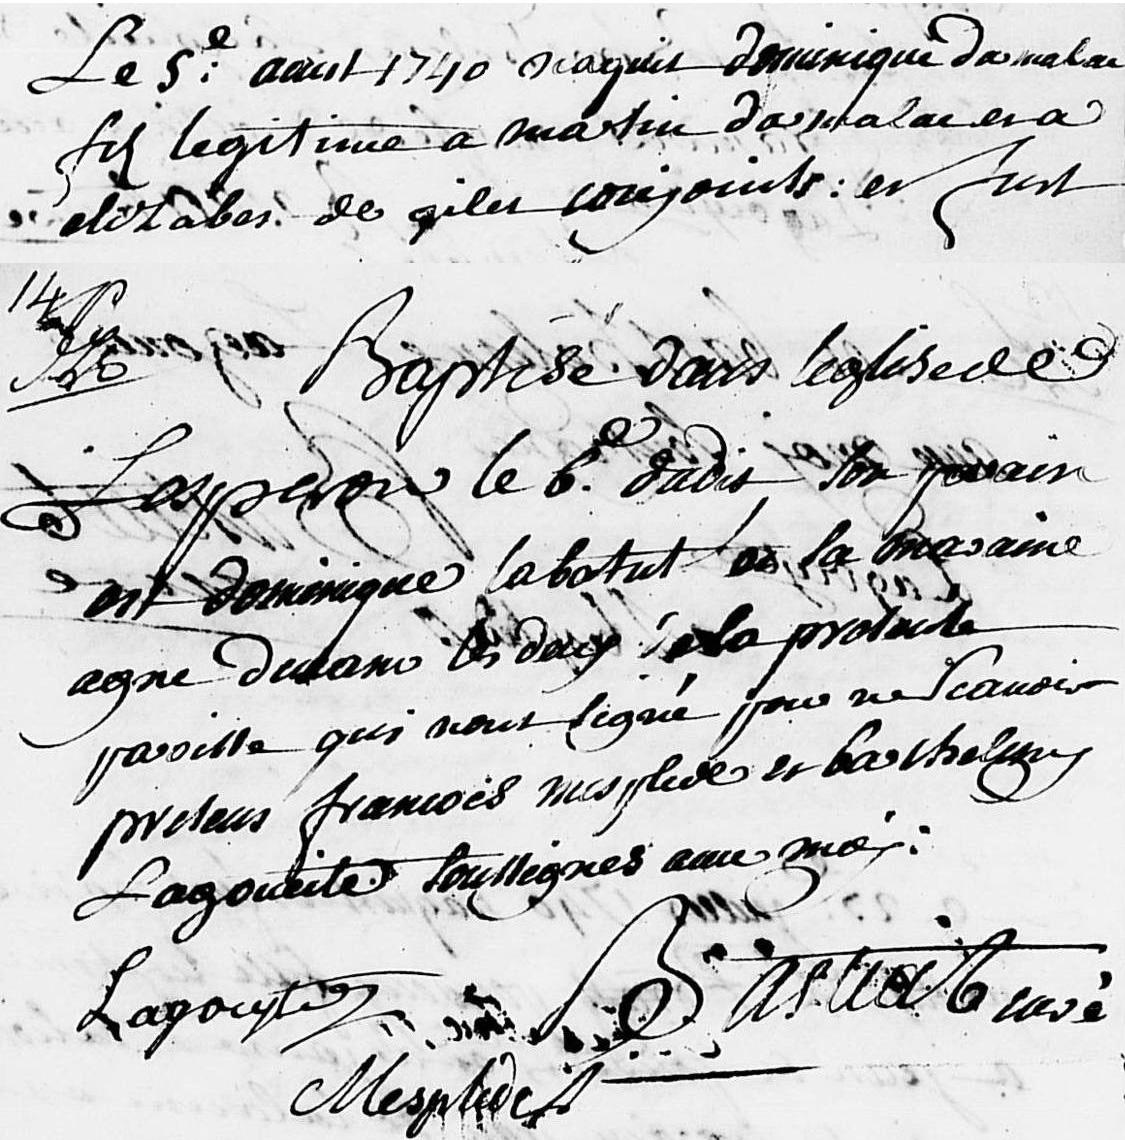 Le 5.e aoust 1740 naquit dominique Damalac
fils legitime a matin damalac et a
elizabet de gilet conjoints: et fust
14
Baptisé dans leglise de
Lesperon le 6.e dudit, son parain
est dominique labatut et la maraine
agne duran les deux de la presente
paroisse qui nont signé pour ne scauoir
presens francois mesplede et barthelemy
Lagoueite soussignes auec moy:
Lagoueyte
curé
Mesplede